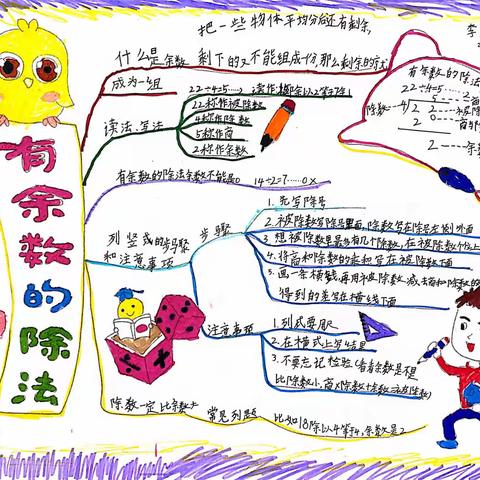 有余数的除法
把一些物体平均分后还有剩余,
什么是余数 剩下的又不能组成一份,那么剩余的
成为一组
读法、写法
22÷4=5……2
22称作被除数
4称作除数
5称作商
2称作余数
有余数的除法余数不能是0 14÷2=7……0 ×
列竖式的步骤
和注意事项
步骤
1.先写除号
2.被除数写除号里面,除数写在除号左侧外面
3.想被除数里最多有几个除数,在被除数个位上
4.将商和除数的乘积写在被除数下面
5.画一条横线,再用被除数减去商和除数的
得到的差写在横线下面
注意事项
1.列式要
2.在横式上写结果
3.不要忘记检验(看看余数是不是
比除数小,商×除数+余数=被除数)
除数一定比余数大 常见列题 比如18除以4等于4,余数是2
李
有余数的除法
22÷4=5……2
5
除数——4
2 2
2 0
2——余数